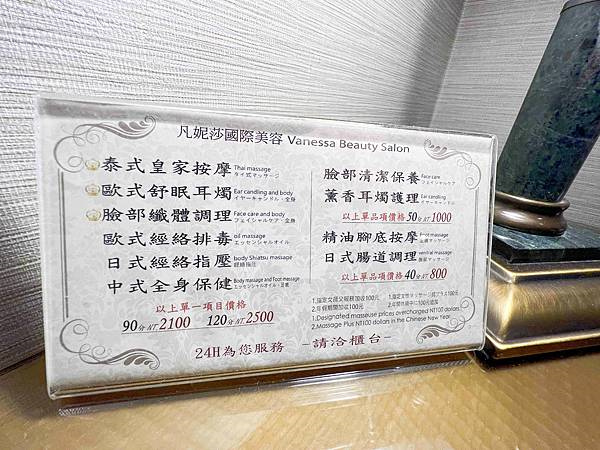 凡妮莎國際美容 Vanessa Beauty Salon
泰式皇家按摩 Thai massage タイ式マッサージ
歐式舒眠耳燭 Ear candling and body イヤーキャンドル・全身
臉部纖體調理 Face care and body フェイシャルケア・全身
歐式經絡排毒 oil massage エッセンシャルオイル
日式經絡指壓 body Shiatsu massage 経絡指圧
中式全身保健 Body massage and Foot massage
以上單一項目價格
90分NT2100 120分NT2500
臉部清潔保養 Face care フェイシャルケア
薰香耳燭護理 Ear candling イヤーキャンドル
以上單品項價格50分NT1000
精油腳底按摩 Foot massage
日式腸道調理 ventral massage
以上單品項價格40分NT800
1.指定女師父服務加收100元
2.年假期間加收100元
1.Designated masseuse prices overcharged NT100 dollars
2.Massage Plus NT100 dollars in the Chinese New Year
24H為您服務 –請洽櫃台–